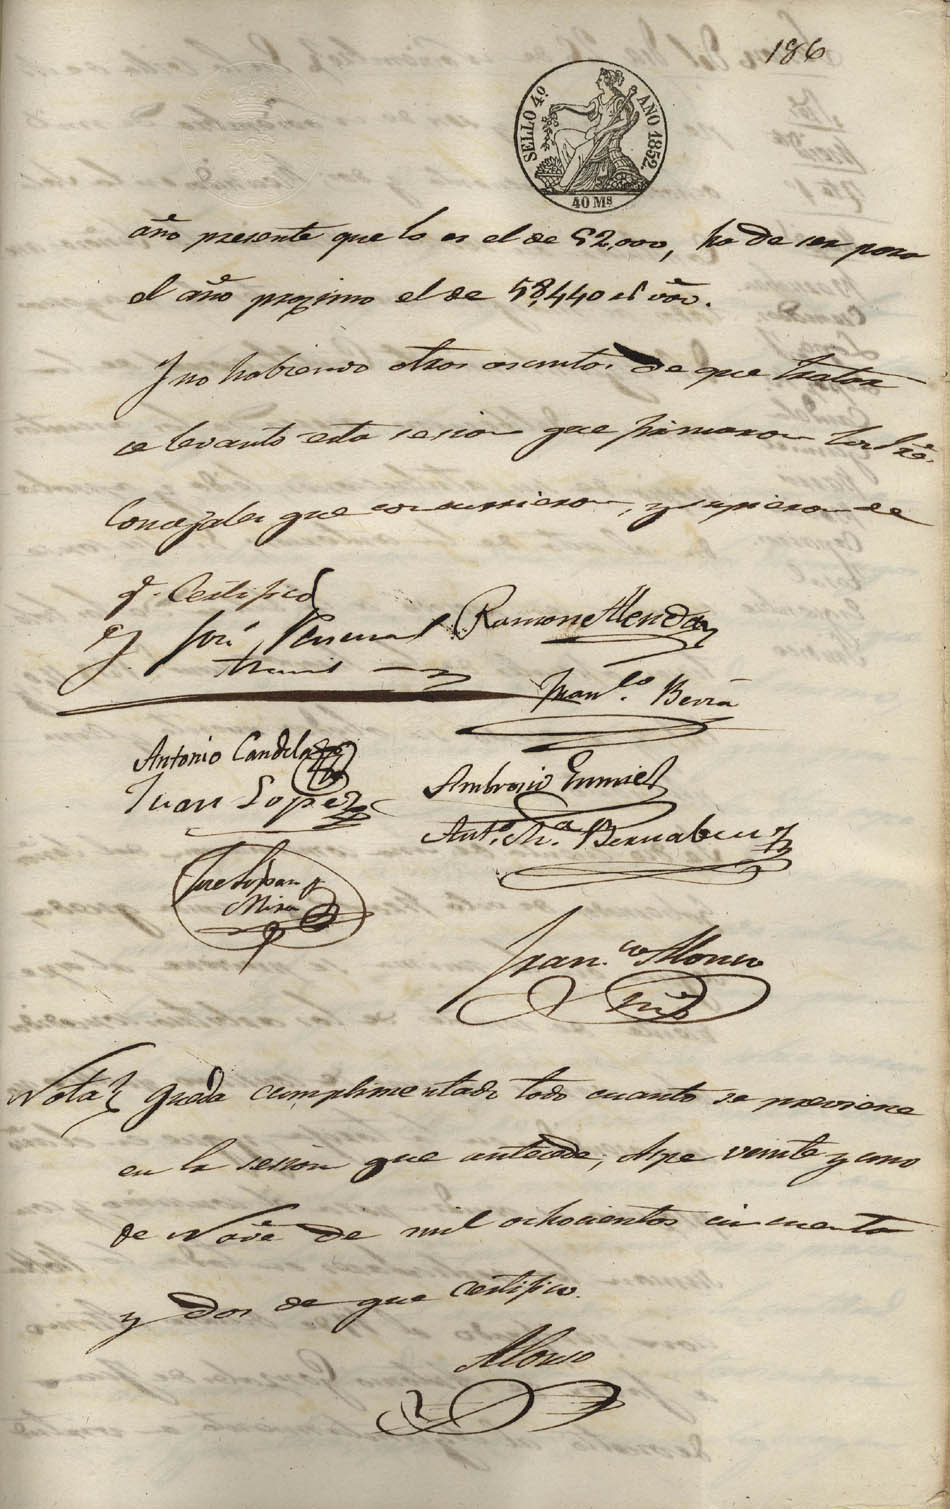 186
SELLO 4º AÑO 1852.
40 Ms
año presente que lo es el de 52,000, ha de ser para
el año proximo el de 58,440 rs von.
Y no habiendo otros asuntos de que tratar
se levanto esta sesion que firmaron los Sres.
Concejales que concurrieron, y supieron de
q. Certifico
José
Ramon Mendez
Man.lo Beviá
Antonio Candela
Juan Lopez
Ambrosio
Anto. Ma. Bernabeu
Jose
Mira
Fran.co Alonso
Nota) Queda cumplimentado todo cuanto se previene
en la sesion que antecede, Aspe veinte y uno
de Nove de mil ochocientos cincuenta
y dos de que certifico.
Alonso